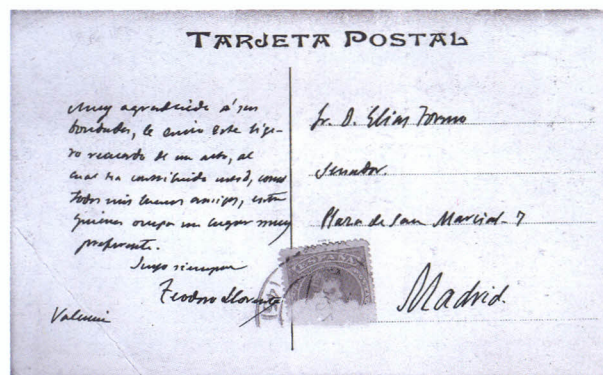 TARJETA POSTAL
Muy agradecido á sus
bondades, le envio este lige-
ro recuerdo de un acto, al
cual ha contribuido usted, como
todos mis buenos amigos, entre
quienes ocupa un lugar muy
preferente.
Suyo siempre
Teodoro Llorente
Valencia
Sr. D. Elias Tormo
Senador.
Plaza de San Marcial 7
Madrid.
ESPAÑA